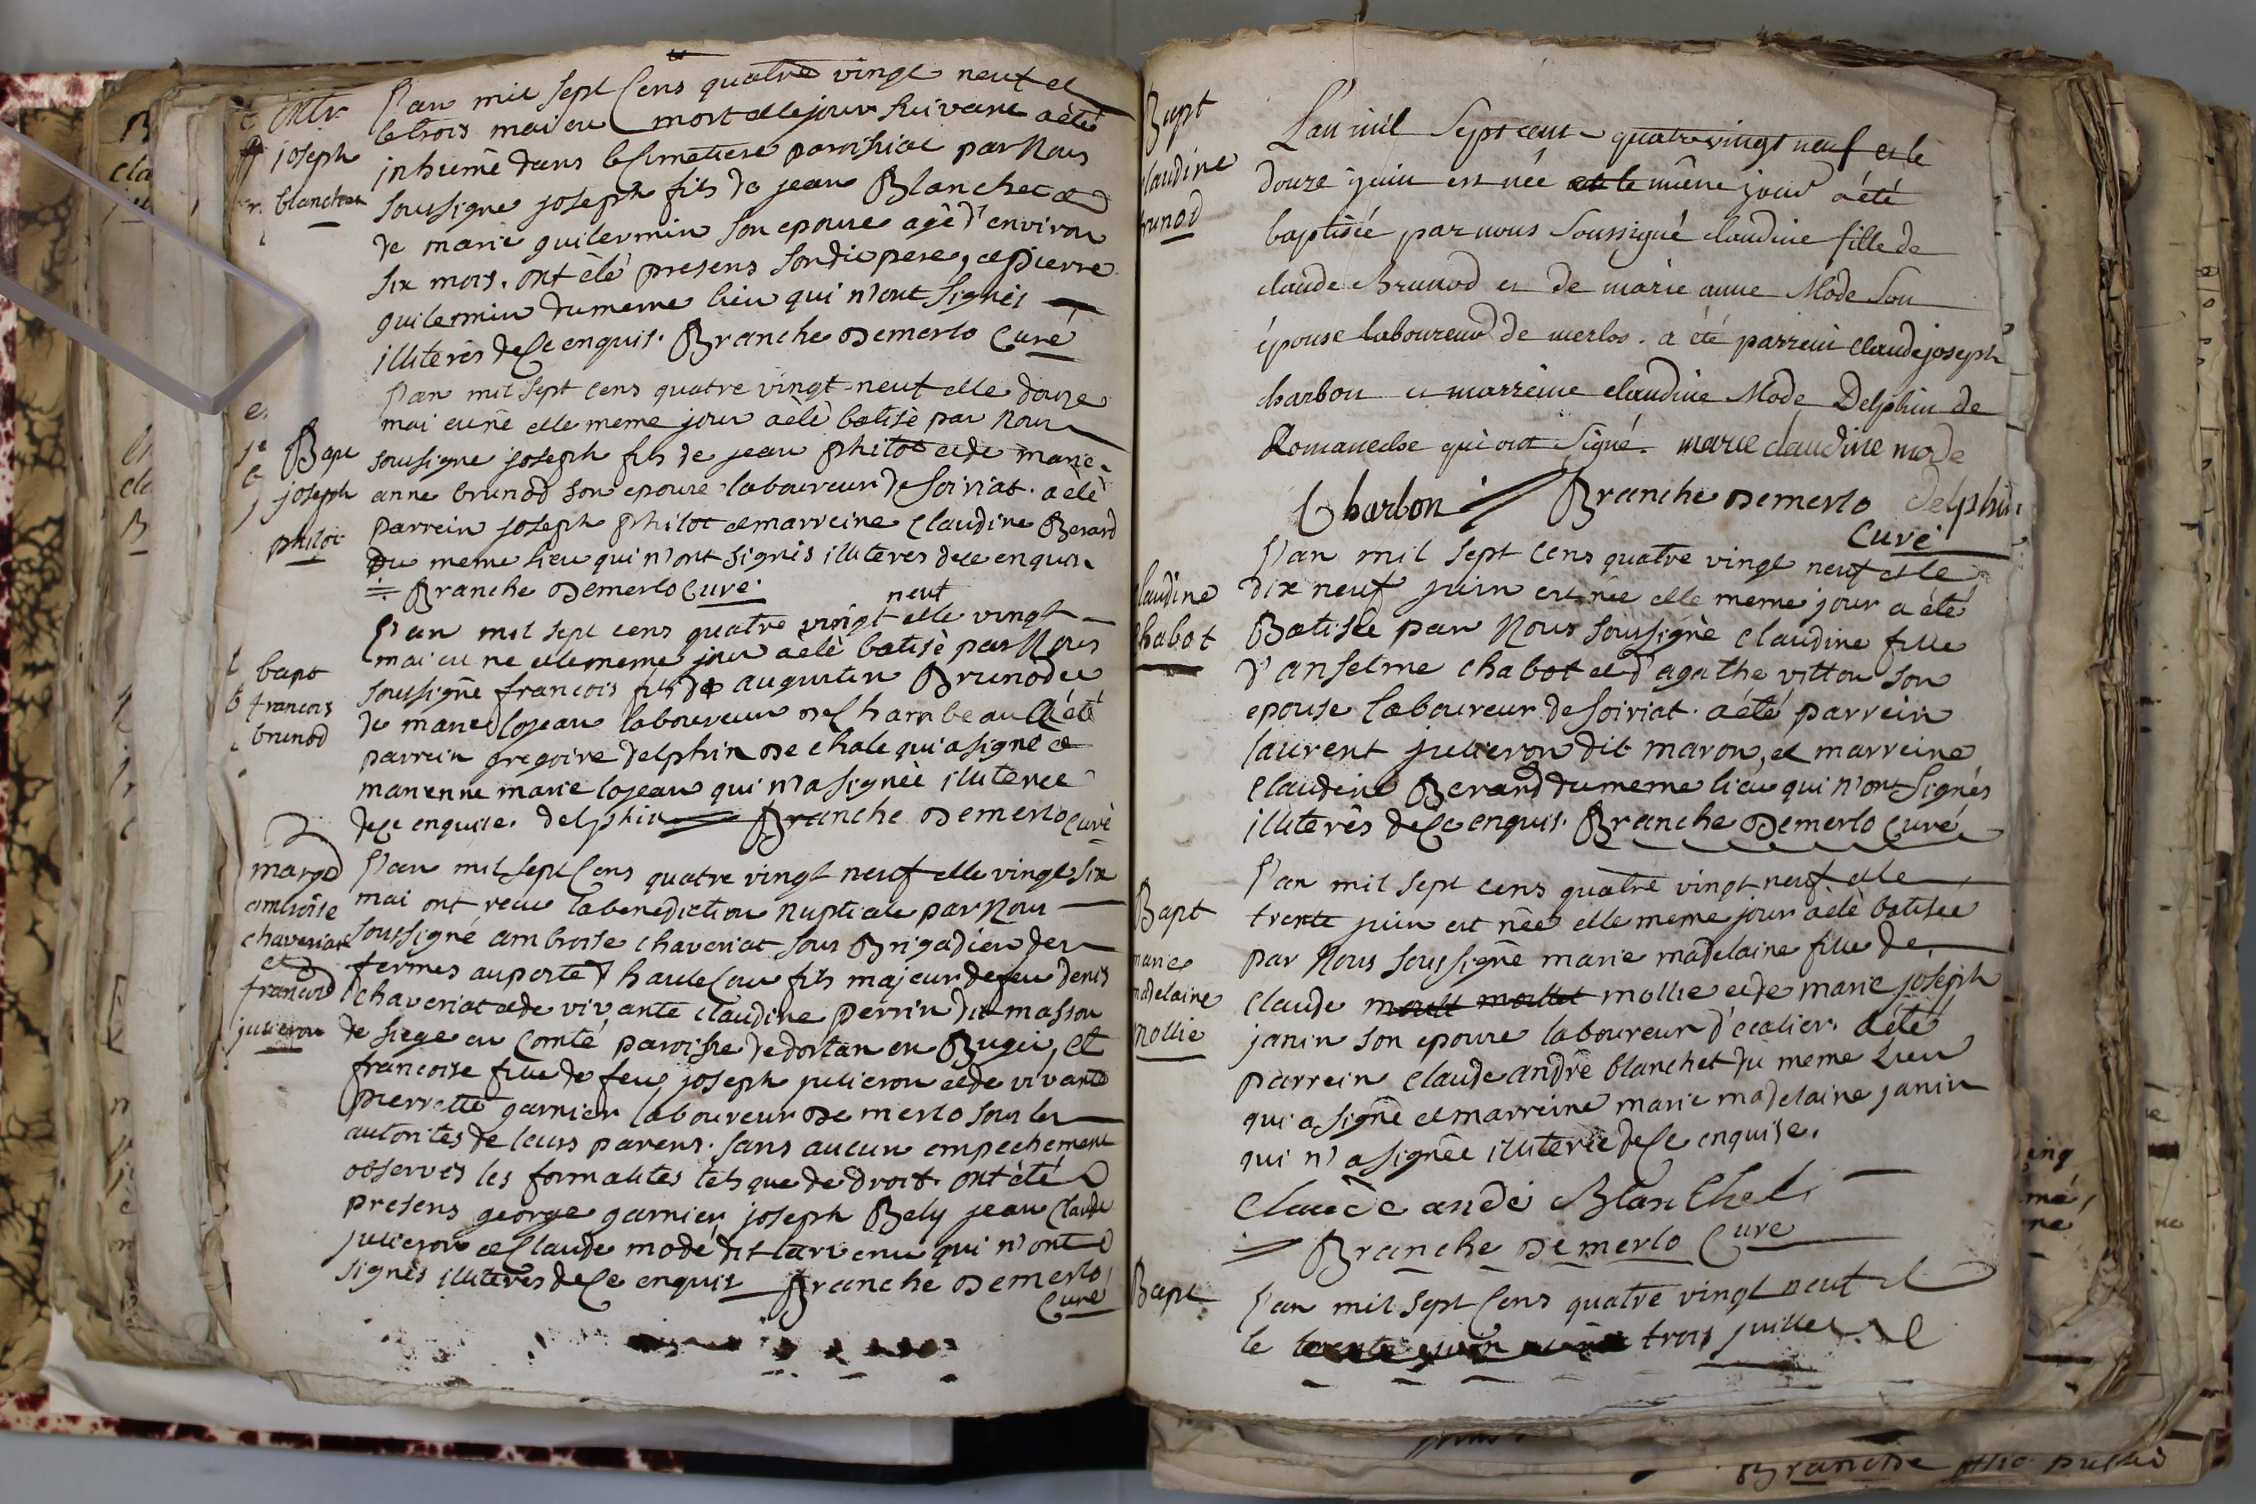 L'an mil sept Cens quatre vingt neuf et
le trois mai en mort et le jour suivant a été
inhumé dans le Cimetiere paroissial par Nous
soussigné joseph fils de jean Blanchet et
de marie guilermin son epouse agé d'environ
six mois. ont été presens son dit pere, et pierre
guilermin du meme lieu qui n'ont signés
illiterès de Ce enquis. Branche De merlo Curé
joseph
blanchet
L'an mil sept cens quatre vingt neuf et le douze
mai en né et le meme jour a été batisé par Nous
soussigné joseph fils de jean philot et de marie
anne brunod son epouse laboureur de soiriat. a été
parrein joseph philot et marreine Claudine Berard
Du meme lieu qui n'ont signés illiterés de ce enquis
Branche De merlo Curé.
Bapt
joseph
philot
neuf
L'an mil sept cens quatre vingt et le vingt
mai en né et le meme jour a été batisé par Nous
soussigné francois fils de augustin Brunod et
de marie lojean laboureur de Chambeau a été
parrein gregoire delphin De chale qui a signé et
marenne marie lojean qui n'a signée illiteree
de Ce enquise. delphin Branche De merlo Curé
bapt
francois
brunod
L'an mil sept Cens quatre vingt neuf et le vingt six
mai ont recu la benediction Nuptiale par Nous
soussigné ambroise chaveriat sous Brigadier des
fermes au poste d haute Cou fils majeur de feu denis
chaveriat et de vivante claudine perrin du masson
de siege en Comté paroisse de dortan en Bugei, et
francoise fille de feu joseph julieron et de vivante
pierrette garnier laboureur De merlo sous les
autorités de leurs parens. sans aucun empechement
observés les formalités tels que de droit. ont été
presens george garnier joseph Bely jean Claude
julieron et Claude modé dit qui n'ont
signés illiterés de Ce enquis Branche De merlo
Curé
mar
ambroise
chaveriat
et
julieron
L'an mil sept cent quatre vingt neuf et le
douze juin est née et le même jour a été
baptisée par nous soussigné claudine fille de
claude Brunod et de marie anne Mode son
épouse laboureur de merlos. a été parrein Claude joseph
charbon et marreine claudine Mode Delphin de
Romaneche qui ont signé. marie claudine mode
Charbon Branche De merlo Delphin
Curé
Bapt
claudine
brunod
L'an mil sept cens quatre vingt neuf et le
dix neuf juin est née et le meme jour a été
Batisée par Nous soussigné claudine fille
d'anselme chabot et d'agathe vitton son
epouse laboureur de soiriat. a été parrein
laurent julieron dit maron, et marreine
Claudine Berard du meme lieu qui n'ont signés
illiterés de Ce enquis. Branche De merlo Curé
claudine
chabot
L'an mil sept cens quatre vingt neuf et le
trente juin est née et le meme jour a été batisée
par Nous soussigné marie madelaine fille de
Claude moult mollet mollie et de marie joseph
janin son epouse laboureur d'ecalier. a été
parrein Claude andré blanchet du meme Lieu
qui a signé et marreine marie madelaine janin
qui n'a signée illiterée de Ce enquise.
Claude andé Blanchet
Branche De merlo Curé
Bapt
marie
madelaine
mollie
Bapt
L'an mil sept Cens quatre vingt neuf et
le trois juillet
Branche